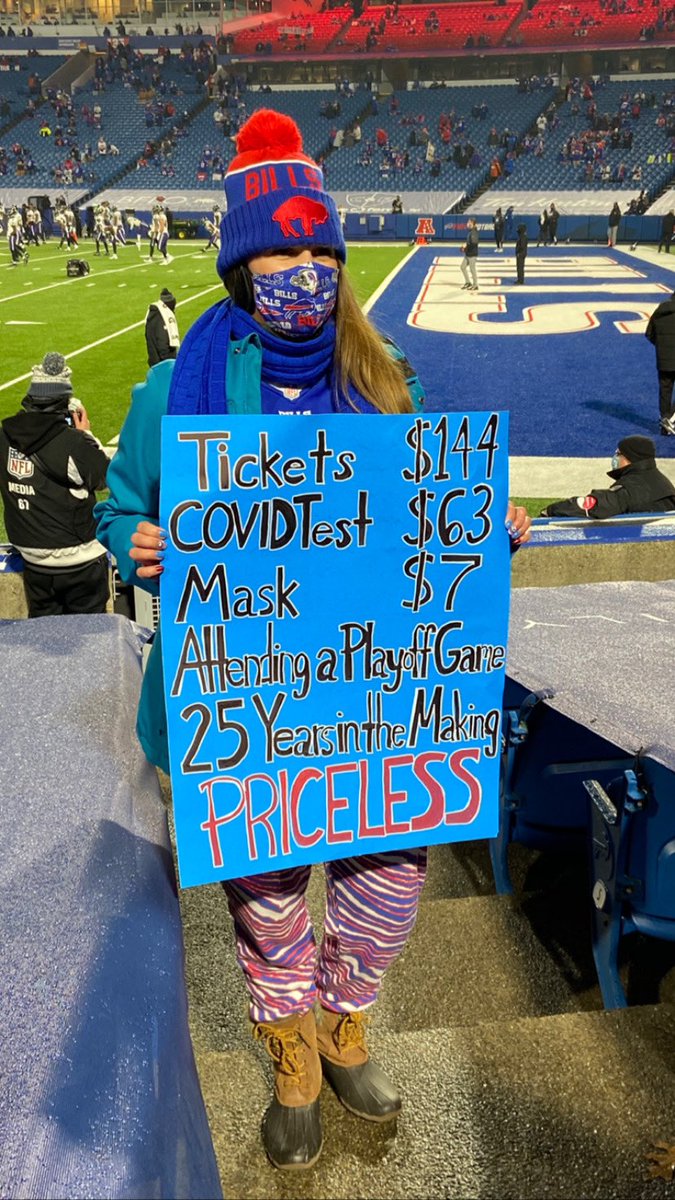 BILLS
BILLS
BILLS
NFL
MEDIA
67
BILLS
Tickets $144
COVID Test $63
Mask $7
Attending a Playoff Game
25 Years in the Making
PRICELESS